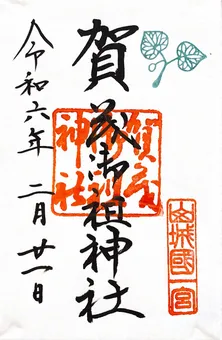 賀茂御祖神社
賀茂
御祖
神社
山城國
一宮
令和六年 二月廿一日